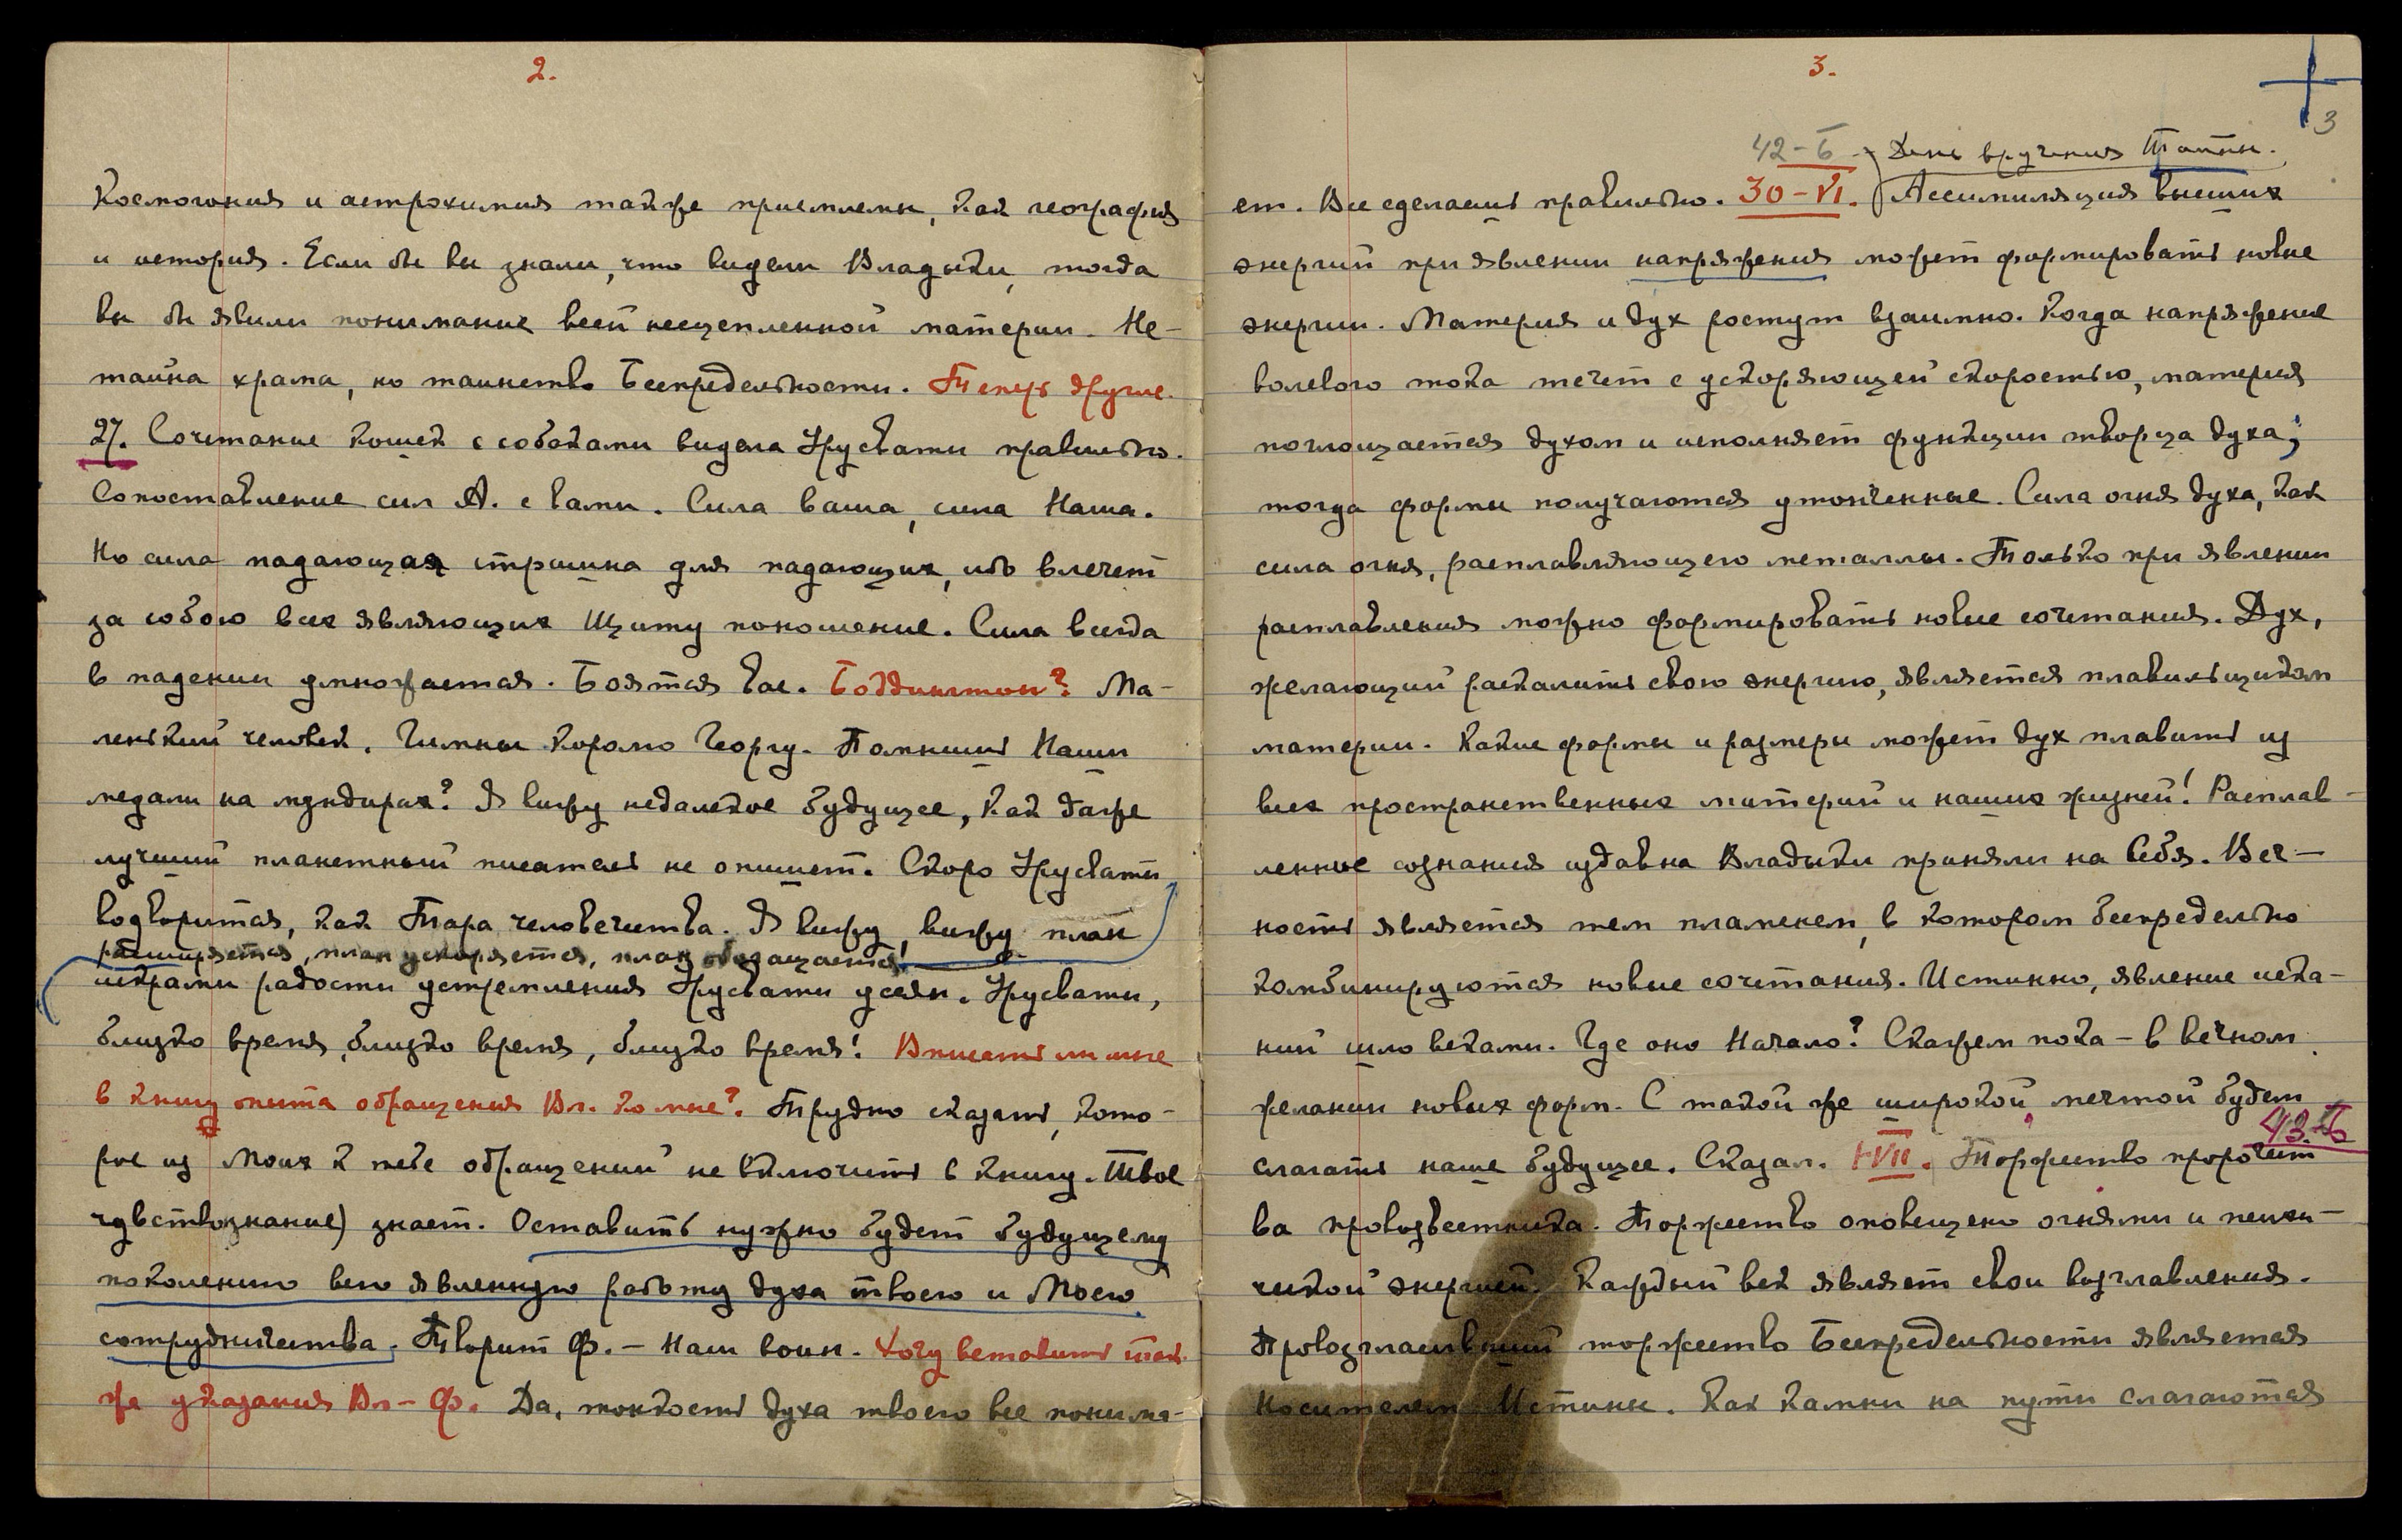 2.
Космогония и астрохимия также приемлемы, как география
и история. Если бы вы знали, что видели Владыки, тогда
вы бы явили понимание всей несцепленной материи. Не-
тайна храма, но таинство Беспредельности. Теперь другие.
27. Сочетание кошек с собаками видела Урусвати правильно.
Сопоставление сил А. с вами. Сила ваша, сила Наша.
Но сила падающая страшна для падающих, ибо влечет
за собою всех являющих Щиту поношение. Сила всегда
в падении умножается. Боятся вас. Боддингтон? Ма-
ленький человек. Гимны королю Георгу. Помнишь Наши
медали на мундирах? Я вижу недалекое будущее, как даже
лучший планетный писатель не опишет. Скоро Урусвати
водворится, как Тара человечества. Я вижу, вижу план
расширяется, план ускоряется, план обогащается!
искрами радости устремления Урусвати усеян. Урусвати,
близко время, близко время, близко время! Вписать ли мне
в книгу опыта обращения Вл. ко мне? Трудно сказать, кото-
рое из Моих к тебе обращений не включить в книгу. Твое
чувствознание) знает. Оставить нужно будет будущему
поколению всю явленную работу духа твоего и Моего
сотрудничества. Творит Ф. – Наш воин. Хочу вставить так-
же указания Вл – Ф. Да, тонкость духа твоего все понима-
3.
3
42 – Б – День вручения Тайны.
ет. Все сделаешь правильно. 30 – VI. Ассимиляция высших
энергий при явлении напряжения может формировать новые
энергии. Материя и дух ростут взаимно. Когда напряжение
волевого тока течет с ускоряющей скоростью, материя
поглощается духом и исполняет функции творца духа;
тогда формы получаются утонченные. Сила огня духа, как
сила огня, расплавляющего металлы. Только при явлении
расплавления можно формировать новые сочетания. Дух,
желающий раскалить свою энергию, является плавильщиком
материи. Какие формы и размеры может дух плавить из
всех пространственных материй и наших жизней! Расплав-
ленные сознания издавна Владыки приняли на Себя. Веч-
ность является тем пламенем, в котором беспредельно
комбинируются новые сочетания. Истинно, явление иска-
ний шло веками. Где оно Начало? Скажем пока – в вечном
желании новых форм. С такой же широкой мечтой будем
43-Б
слагать наше будущее. Сказал. 1-VII. Торжество пророчест
ва провозвестника. Торжество оповещено огнями и психи-
ческой энергией. Каждый век являет свои возглавления.
Провозгласивший торжество Беспредельности является
Носителем Истины. Как камни на пути слагаются